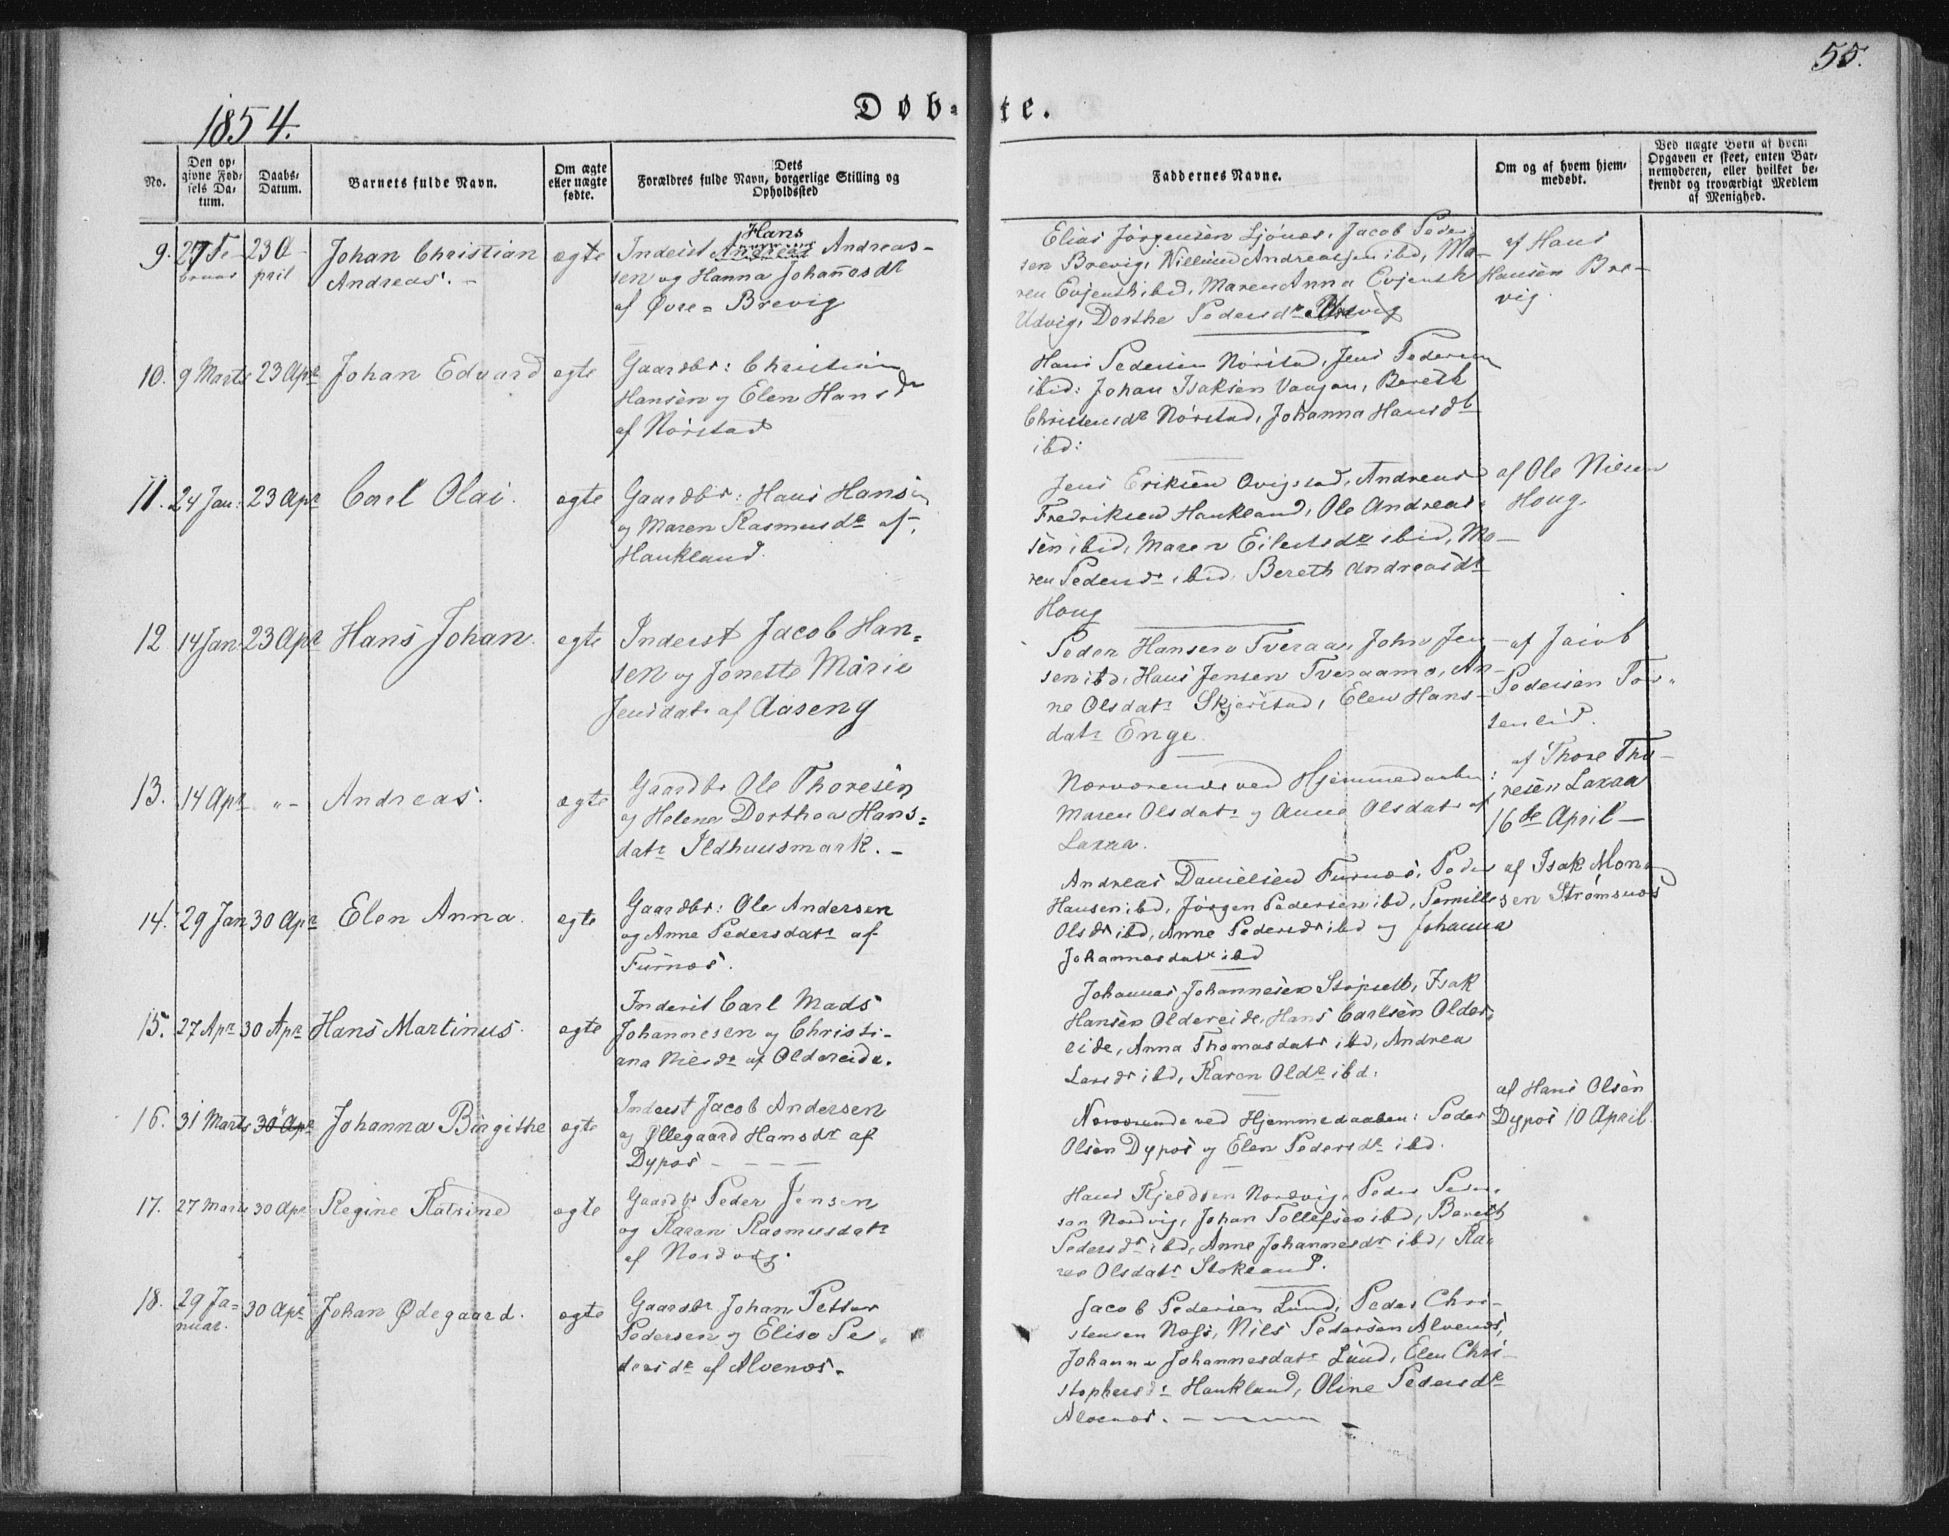 55.
1854.
Døb-te.
No.
Den op-
givne Fød-
sels Da-
tum.
Daabs-
Datum.
Barnets fulde Navn.
Om ægte
eller uægte
fødte.
Dets
Forældres fulde Navn, borgerlige Stilling og
Opholdssted
Faddernes Navne.
Om og af hvem hjem-
medøbt.
Ved uægte Børn af hvem
Opgaven er skeet, enten Bar-
nemoderen, eller hvilket be-
kjendt og troværdigt Medlem
af Menighed.
9.
27 Fe-
bruar
23 A-
pril
Johan Christian
Andreas. -
ægte
Hans
Inderst Andreas Andreas-
sen og Hanna Johannesdt
af Øvre-Brevig
Elias Jørgensen Ljønes, Jacob Peder-
sen Brevig, Andreassen ibid, Ma-
ren Evjenth ibid, Maren Anna Evjenth
Udvig, Dorthe Pedersdr Brevig
af Hans
Hansen Bre-
vig.
10.
9 Marts
23 Apr
Johan Eduard
egte
Gaardbr: Christian
Hansen og Elen Hansdr
af Nørstad
Hans Pedersen Nørstad, Jens Pedersen
ibid: Johan Isaksen Vaagan, Bereth
Christensdr Nørstad, Johanna Hansdt
ibd:
11.
24 Jan:
23 Apr
Carl Olai.
egte
Gaardbr: Hans Hansen
og Maren Rasmusdr af
Haukland.
Jens Eriksen Qvigstad, Andreas
Fredriksen Haukland, Ole Andreas-
sen ibid, Maren Eilertsdr ibid, Ma-
ren Pedersdr ibid, Bereth Andreasdt
Houg
af Ole Nilsen
Houg.
12.
14 Jan
23 Apr
Hans Johan.
egte
Inderst Jacob Han-
sen og Jonette Marie
Jensdatr af Aaseng
Peder Hansen Tveraa, John Jen-
sen ibd, Hans Jensen Tveraamo, An-
ne Olsdatr Skjerstad, Elen Hans-
datr Enge.
af Jacob
Pedersen Tor-
senlid.
13.
14 Apr
"-
Andreas.
ægte
Gaardbr Ole Thoresen
og Helene Dorthea Hans-
datr Ildhuusmark. -
Nærværende ved Hjemmedaaben:
Maren Olsdatr og Anne Olsdatr af
Laxaa.
af Thore Tho-
resen Laxaa
16de April -
14.
29 Jan
30 Apr
Elen Anna.
egte
Gaardbr: Ole Andersen
og Anne Pedersdatr af
Furnæs.
Andreas Danielsen Furnæs, Peder
Hansen ibd, Jørgen Pedersen ibd, Pernille
Olsdr ibd, Anne Pedersdr ibd og Johanna
Johannesdatr ibd
af Isak Mon-
sen Strømsnæs
15.
27 Apr
30 Apr
Hans Martinus.
egte
Inderst Carl Mads
Johannesen og Christi-
ana Nielsdr af Oldereide.
Johannes Johannesen Støpselt, Isak
Hansen Oldereide, Hans Carlsen Older-
eide, Anna Thomasdatr ibd, Andrea
Larsdr ibd, Karen Olsdr ibd.
16.
31 Marts
30 Apr
Johanna Birgithe
egte
Inderst Jacob Andersen
og Øllegaard Hansdr af
Dypos - - - -
Nærværende ved Hjemmedaaben: Peder
Olsen Dypos og Elen Pedersdr ibd.
af Hans Olsen
Dypos 10 April.
17.
27 Marts
30 Apr
Regine Katrine
egte
Gaardbr Peder Jensen
og Karen Rasmusdatr
af Nordvig.
Hans Kjeldsen Nordvig, Peder Peder-
sen Nordvig, Johan Tollefsen ibd, Bereth
Pedersdr ibd, Anne Johannesdr ibd, Ka-
ren Olsdatr Stokland.
18.
29 Ja-
nuar.
30 Apr
Johan Ødegaard.
egte
Gaardbr Johan Petter
Pedersen og Elisa Pe-
dersdr af Alvenes.
Jacob Pedersen Lund, Peder Chri-
stensen Næss, Nils Pedersen Alvenes,
Johanna Johannesdatr Lund, Elen Chri-
stophersdr Haukland, Oline Pedersdr
Alvenes.